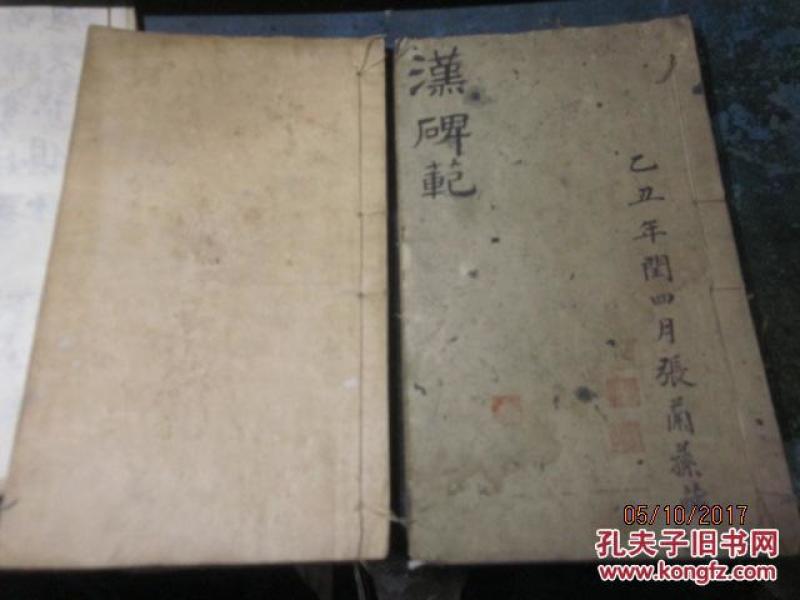 漢碑範
乙丑年閏四月張蘭蓀
05/10/2017
孔夫子旧书网
www.kongfz.com